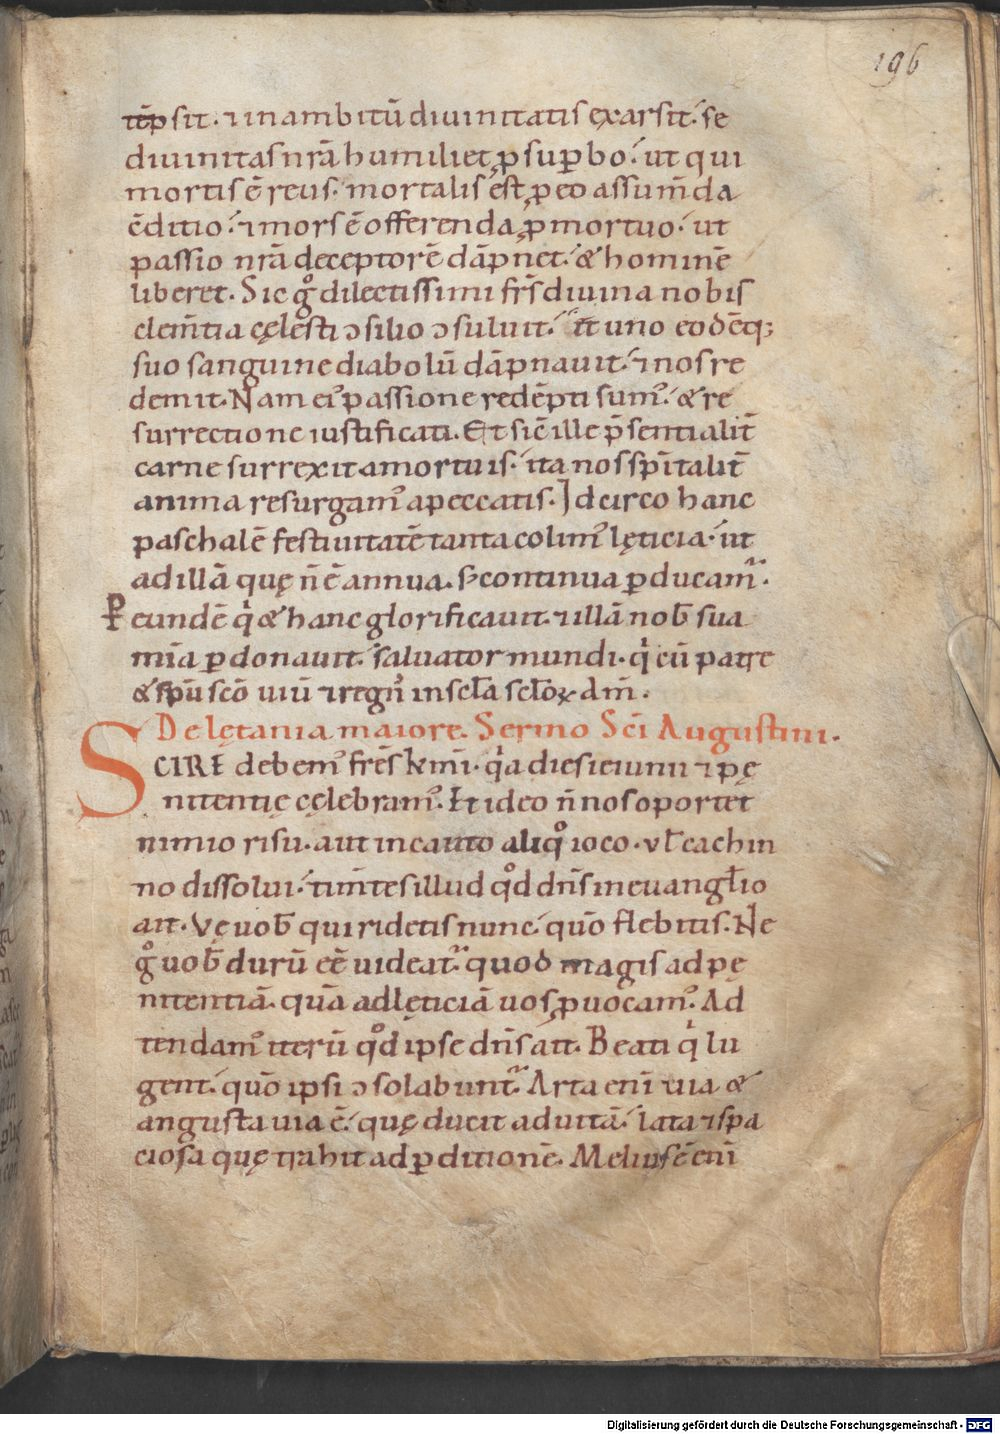 196
tēpsit · ⁊ in ambitū diuinitatis exarsit · se
diuinitas nr̄a humiliet ꝓ suꝑbo · ut qui
mortis ē reus · mortalis ē st ꝓ eo assum̄da
c̄ditio · ⁊ mors ē offerenda ꝓ mortuo · ut
passio nr̄a deceptorē dāpnet · & hominē
liberet · Sic gͦ dilectissimi fr̄s diuina nobis
clem̄tia cęlesti ↄsilio ↄsuluit · ut uno eodēq;
suo sanguine diabolū dāpnauit · ⁊ nos re
demit · Nam ei᾽ passione redēpti sum᾽ · & re
surrectione iustificati · Et sic̄ ille p̄sentialit̄
carne surrexit a mortuis · ita nos spīritalit̄
anima resurgam᾽ a peccatis · Idcirco hanc
paschalē festiuitatē tanta colim᾽ lęticia · ut
ad illā quę n̄ ē annua · s; continua ꝑducam᷑ ·
P̄ eundē qͥ & hanc glorificauit · ⁊ illā nob̄ sua
mīa ꝑdonauit · saluator mundi · qͥ cū patre
& spū scō uiū ⁊ regn̄ in scl̄a scl̄oꝝ am̄ ·
De lętania maiore · Sermo Sc̄i Augustini ·
SCIRE debem᾽ fr̄es km̄i · qͥa dies ieiunii ⁊ pę
nitentię cęlebram᾽ · Et ideo n̄ nos oportet
nimio risu · aut incauto aliqͦ ioco · vl̄ cachin
no dissolui · tim̄tes illud qͦd dn̄s in euangl̄io
ait · Vę uob̄ qui ridetis nunc · quō flebitis · Ne
gͦ uob̄ durū eē uideat᷑ quod magis ad pę
nitentiā · quā ad lęticiā uos ꝓuocam᾽ · Ad
tendam᾽ iterū qͦd ipse dn̄s ait · Beati qͥ lu
gent · quō ipsi ↄsolabunt᷑ · Arta enī uia &
angusta uia ē · quę ducit ad uitā · lata ⁊ spa
ciosa quę trahit ad ꝑditionē · Melius ē enī
Digitalisierung gefördert durch die Deutsche Forschungsgemeinschaft · DFG